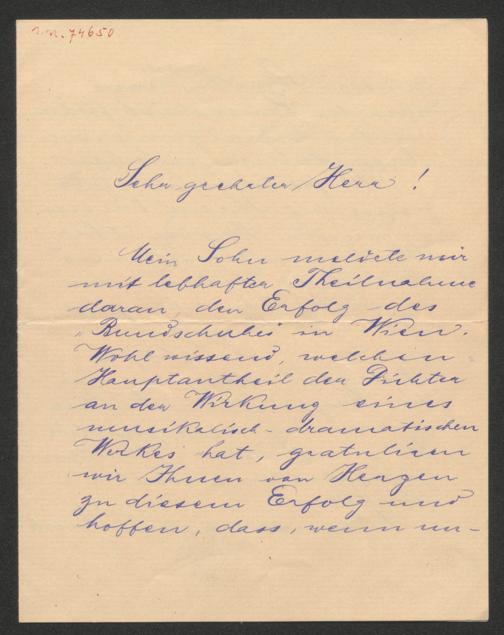 N.N. 74650
Sehr geehrter Herr!
Mein Sohn meldete mir
mit lebhafter Theilnahme
daran, den Erfolg des
„Bundschuhs" in Wien.
Wohl wissend, welchen
Hauptantheil der Dichter
an der Wirkung eines
musikalisch-dramatischen
Werkes hat, gratuliren
wir Ihnen von Herzen
zu diesem Erfolg und
hoffen, dass, wenn un-